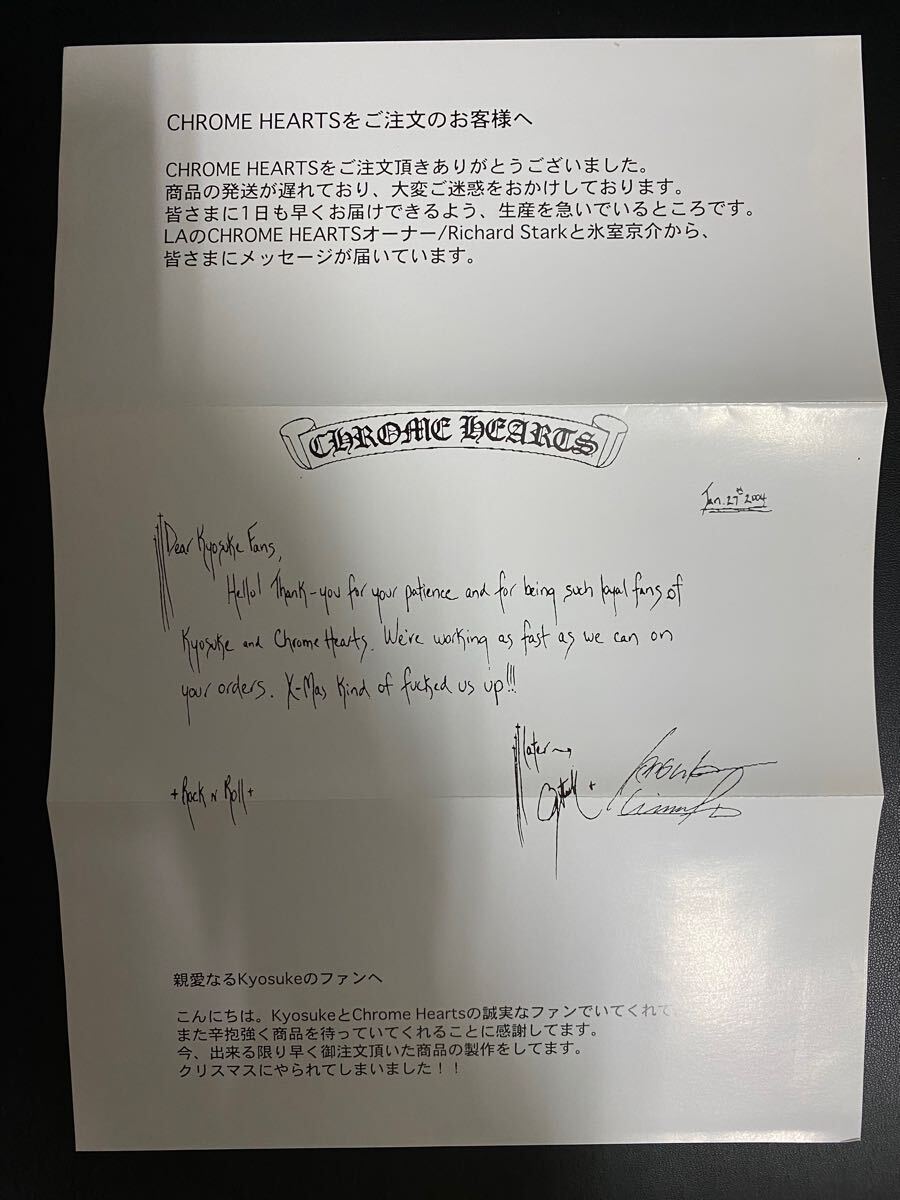 CHROME HEARTSをご注文のお客様へ
CHROME HEARTSをご注文頂きありがとうございました。
商品の発送が遅れており、大変ご迷惑をおかけしております。
皆さまに1日も早くお届けできるよう、生産を急いでいるところです。
LAのCHROME HEARTSオーナー/Richard Starkと氷室京介から、
皆さまにメッセージが届いています。
CHROME HEARTS
Jan. 27th 2004
Dear Kyosuke Fans,
Hello! Thank-you for your patience and for being such loyal fans of
Kyosuke and Chrome Hearts. We're working as fast as we can on
your orders. X-Mas kind of fucked us up!!!
Later
+ Rock N Roll +
親愛なるKyosukeのファンへ
こんにちは。KyosukeとChrome Heartsの誠実なファンでいてくれて
また辛抱強く商品を待っていてくれることに感謝してます。
今、出来る限り早く御注文頂いた商品の製作をしてます。
クリスマスにやられてしまいました！！